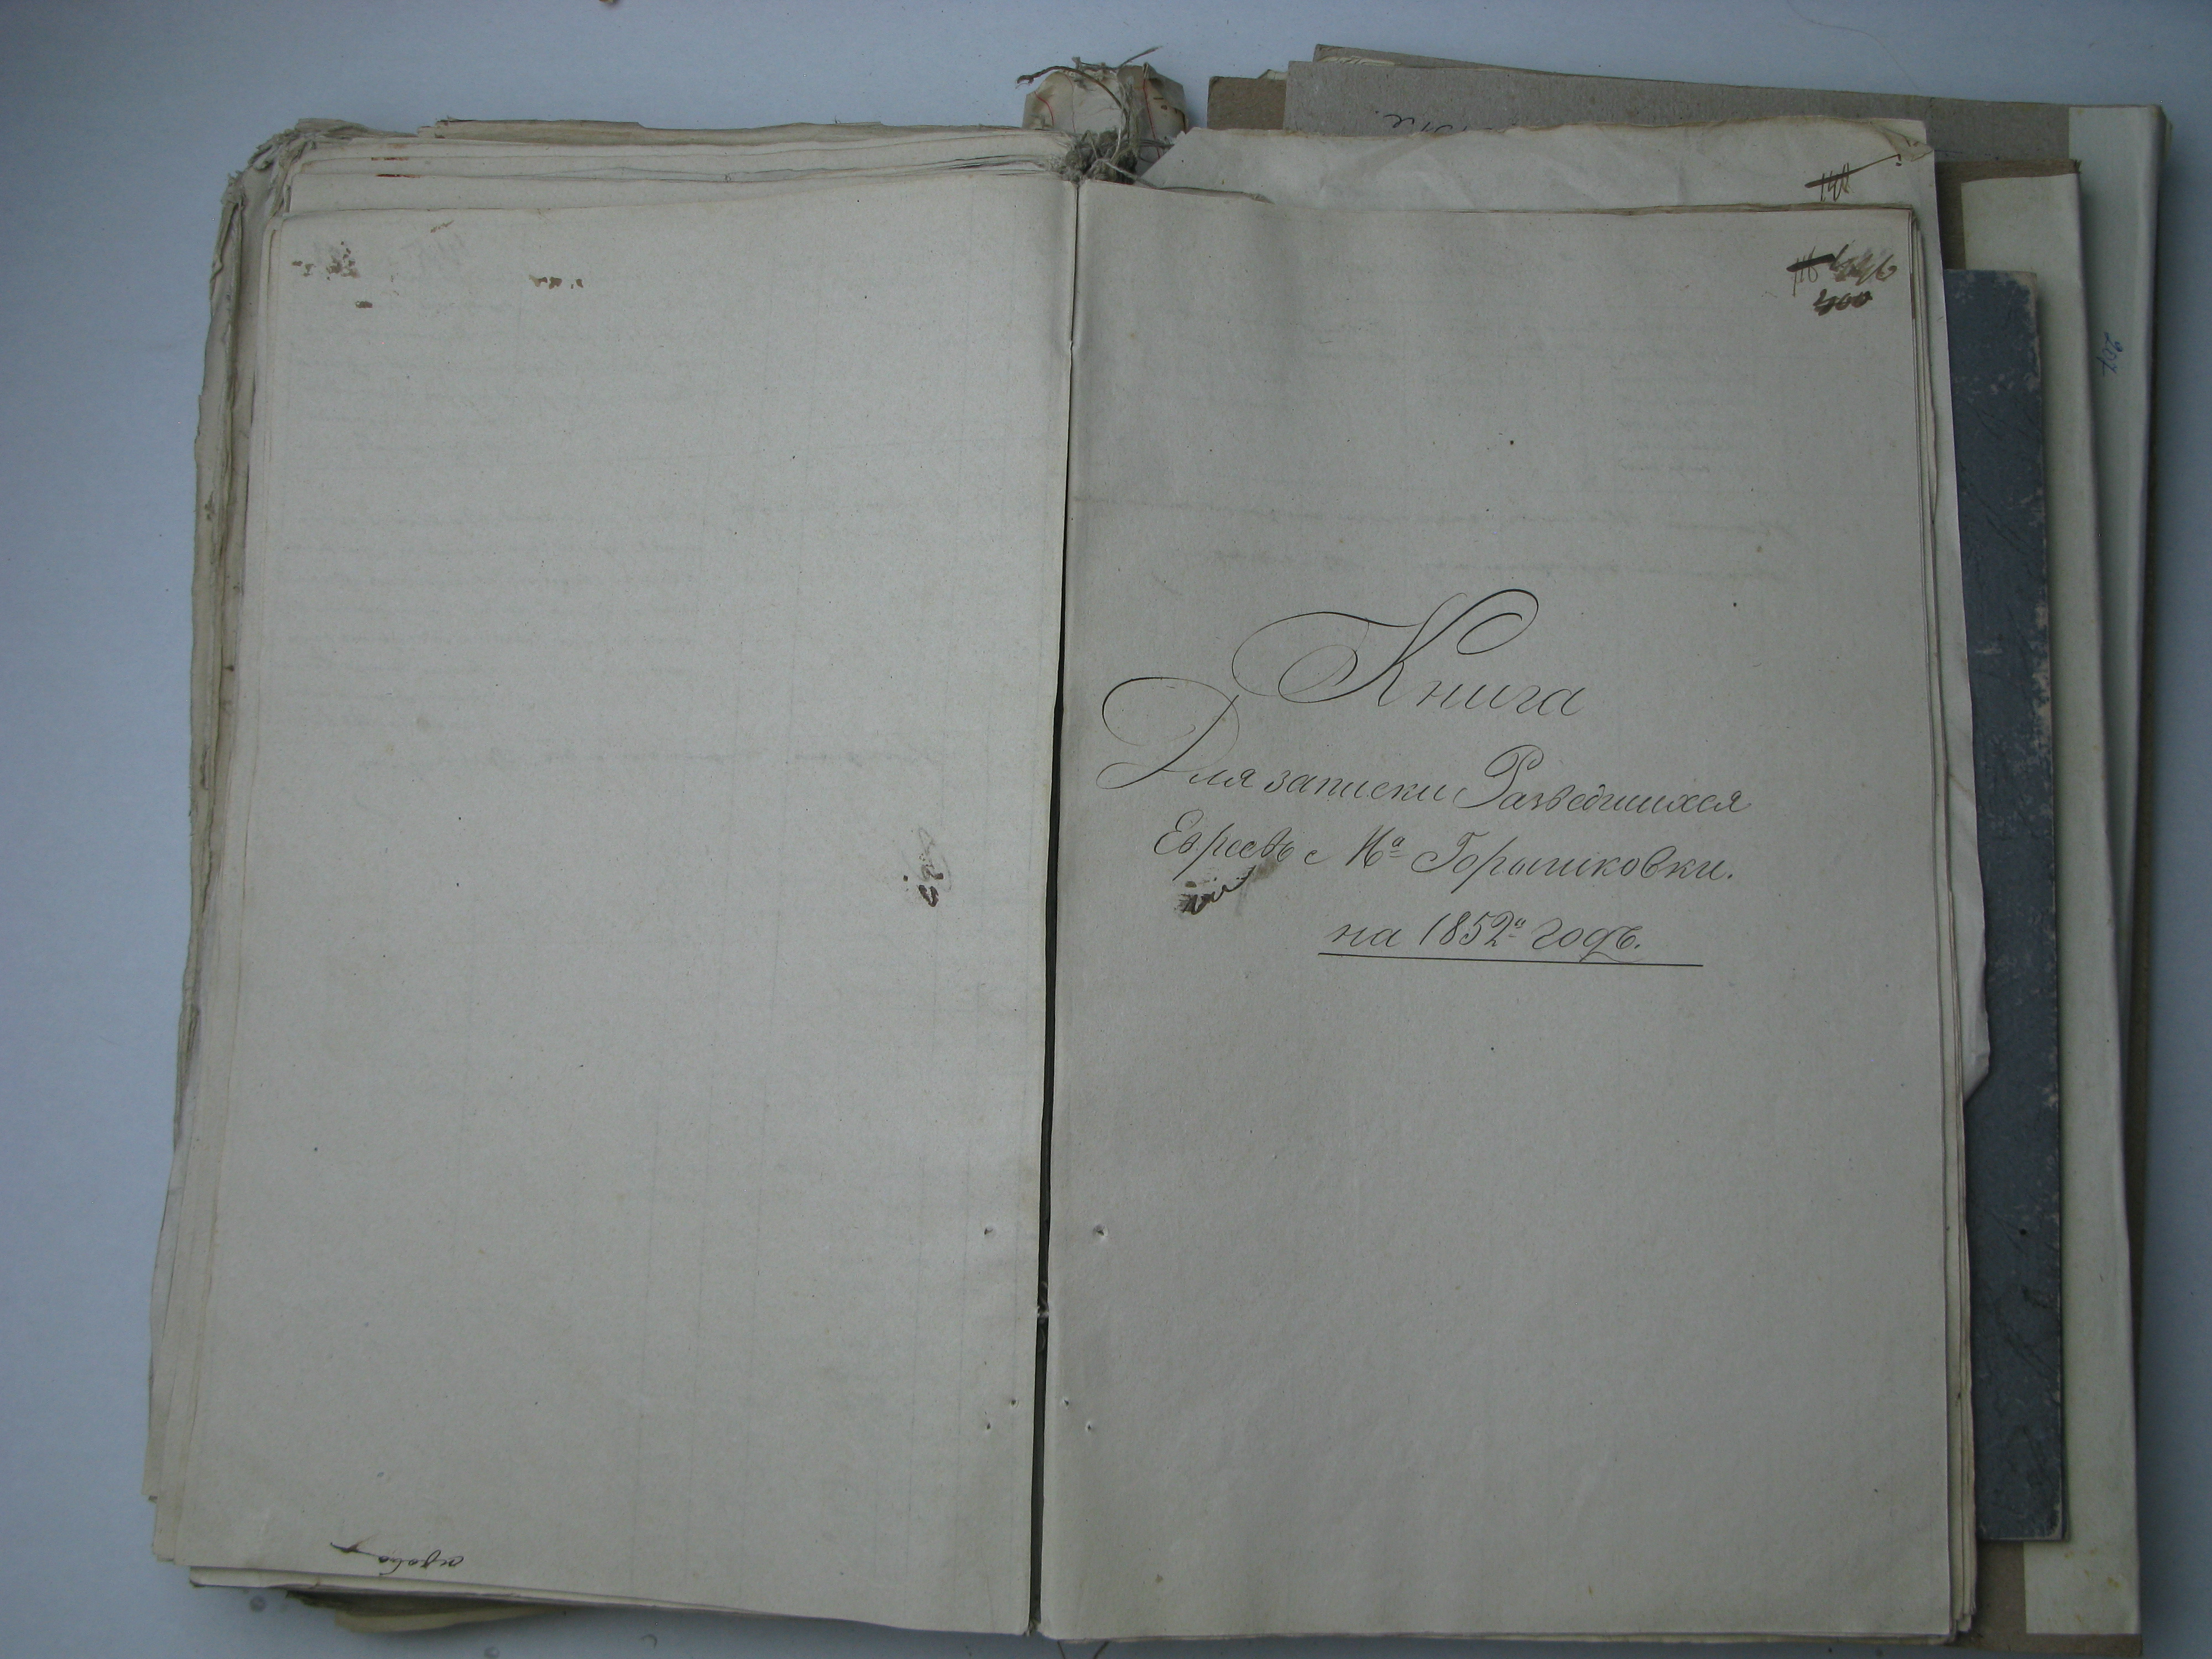 446
400
Книга
Для записки Разведшихся
Евреевъ с Мᵃ Горышковки.
на 1852ᵃ годъ.
207